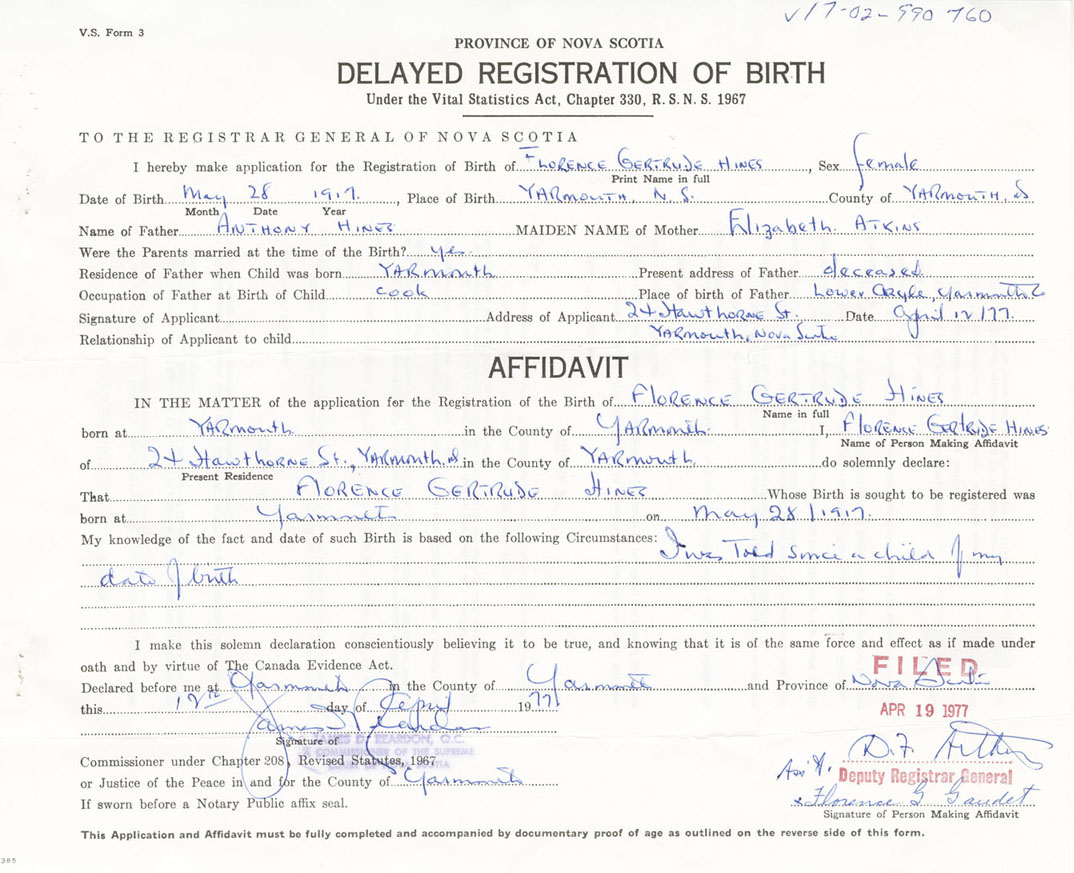 V17-02-990 760
V.S. Form 3
PROVINCE OF NOVA SCOTIA
DELAYED REGISTRATION OF BIRTH
Under the Vital Statistics Act, Chapter 330, R.S.N.S. 1967
TO THE REGISTRAR GENERAL OF NOVA SCOTIA
I hereby make application for the Registration of Birth of FLORENCE GERTRUDE HINES, Sex female
Print Name in full
Date of Birth May 28 1917, Place of Birth YARMOUTH, N.S. County of YARMOUTH,
Month Date Year
Name of Father ANTHONY HINES MAIDEN NAME of Mother Elizabeth ATKINS
Were the Parents married at the time of the Birth? yes
Residence of Father when Child was born YARmouth Present address of Father deceased
Occupation of Father at Birth of Child cook Place of birth of Father Lower Argyle, Yarmouth Co
Signature of Applicant Address of Applicant 24 Hawthorne St. Date April 12/77
Relationship of Applicant to child YARmouth, Nova Scotia
AFFIDAVIT
IN THE MATTER of the application for the Registration of the Birth of FLORENCE GERTRUDE HINES
Name in full
born at YARmouth in the County of YARmouth I, FLORENCE GERTRUDE HINES
Name of Person Making Affidavit
of 24 Hawthorne St., YARMOUTH, in the County of YARMOUTH do solemnly declare:
Present Residence
That FLORENCE GERTRUDE HINES Whose Birth is sought to be registered was
born at Yarmouth on May 28/1917.
My knowledge of the fact and date of such Birth is based on the following Circumstances: I was Told since a child of my
date of birth
I make this solemn declaration conscientiously believing it to be true, and knowing that it is of the same force and effect as if made under
oath and by virtue of The Canada Evidence Act.
FILED
Declared before me at Yarmouth in the County of Yarmouth and Province of Nova Scotia
this 12th day of April 1977
APR 19 1977
Signature of
JAMES D. REARDON, Q.C.
A COMMISSIONER OF THE SUPREME
Commissioner under Chapter 208, Revised Statutes, 1967
D.F.
Deputy Registrar General
or Justice of the Peace in and for the County of Yarmouth
x Florence G Gaudet
If sworn before a Notary Public affix seal.
Signature of Person Making Affidavit
This Application and Affidavit must be fully completed and accompanied by documentary proof of age as outlined on the reverse side of this form.
385